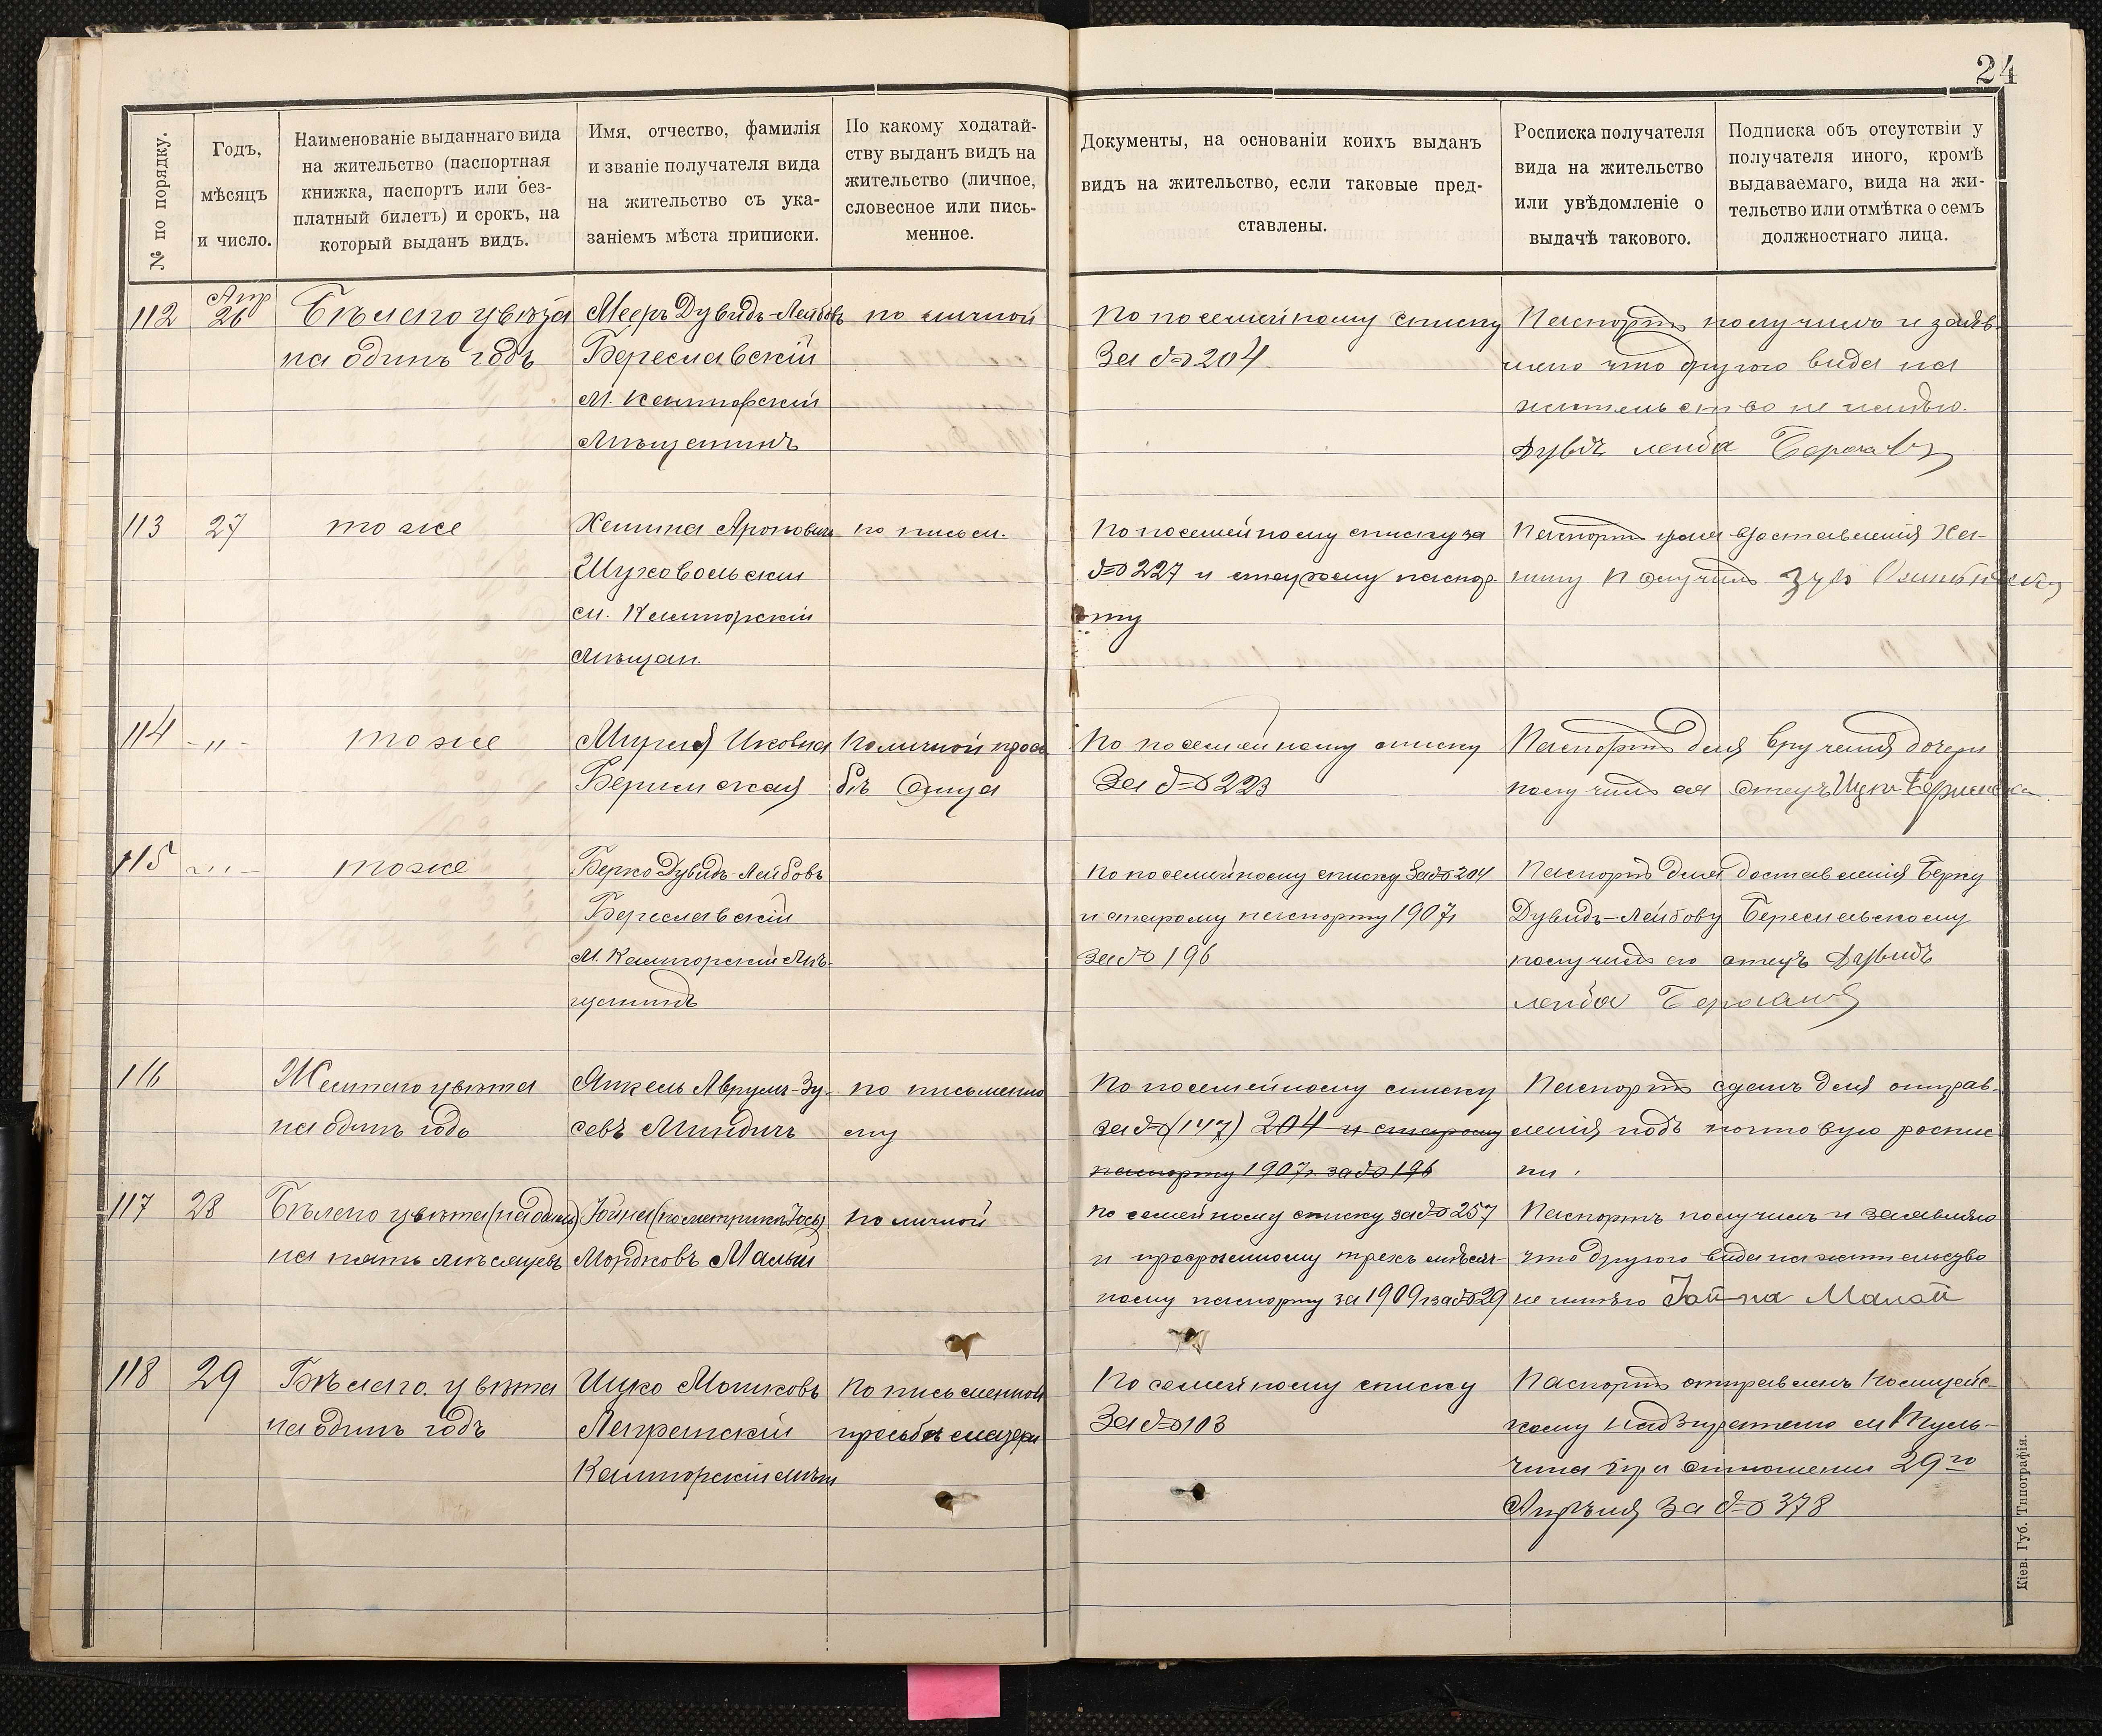 24
№ по порядку.
Годъ,
мѣсяцъ
и число.
Наименованіе выданнаго вида
на жительство (паспортная
книжка, паспортъ или без-
платный билетъ) и срокъ, на
который выданъ видъ.
Имя, отчество, фамилія
и званіе получателя вида
на жительство съ ука-
заніемъ мѣста приписки.
По какому ходатай-
ству выданъ видъ на
жительство (личное,
словесное или пись-
менное.
Документы, на основаніи коихъ выданъ
видъ на жительство, если таковые пред-
ставлены.
Росписка получателя
вида на жительство
или увѣдомленіе о
выдачѣ такового.
Подписка объ отсутствіи у
получателя иного, кромѣ
выдаваемаго, вида на жи-
тельство или отмѣтка о семъ
должностнаго лица.
112
Апр
26
Бѣлаго цвѣта
на одинъ годъ
Мееръ Дувидъ-Лейбовъ
Береславскій
М. Канторскій
Мѣщанинъ
по личной
По посемейному списку
За № 204
Паспортъ получилъ и заяв-
ляю что другого вида на
жительство не имѣю.
Дувидъ лейба
113
27
тоже
Хаимна Ароновичъ
по письм.
м.
Мѣщан.
По посемейному списку за
№ 227 и старому паспор-
ту
Паспортъ для доставленія Ха-
получилъ
114
- " -
тоже
Ицковна
По личной прось
бѣ Отца
По посемейному списку
За № 223
Паспортъ для врученія дочери
получилъ ея отецъ Ицко
115
- " -
тоже
Берко Дувидъ-Лейбовъ
Береславскій
М. Канторскій Мѣ-
щанинъ
По посемейному списку За № 204
и старому паспорту 1907 г
за № 196
Паспортъ для доставленія Берку
Дувидъ-Лейбову Береславскому
получилъ его отецъ Дувидъ
лейба
116
Желтаго цвѣта
на одинъ годъ
Янкель Аврумъ-Зу-
севъ Миндичъ
по письменно
му
По посемейному списку
за № (147) 204 и старому
паспорту 1907 г. за № 196
Паспортъ сданъ для отправ-
ленія подъ почтовую роспис
ки.
117
28
Бѣлаго цвѣта
на пять мѣсяцевъ
Мордковъ Малый
по личной
По семейному списку за № 257
и просроченному трехъ мѣсяч-
ному паспорту за 1909 г за № 29
Паспортъ получилъ и заявляю
что другого вида на жительство
не имѣю Іойна Малой
118
29
Бѣлаго цвѣта
на одинъ годъ
Ицко Мошковъ
По письменной
просьбѣ матери
По семейному списку
За № 103
Паспортъ отправленъ Полицейс-
кому Надзирателю м Туль-
чина при отношеніи 29го
Апрѣля За № 378
Кіев. Губ. Типографія.